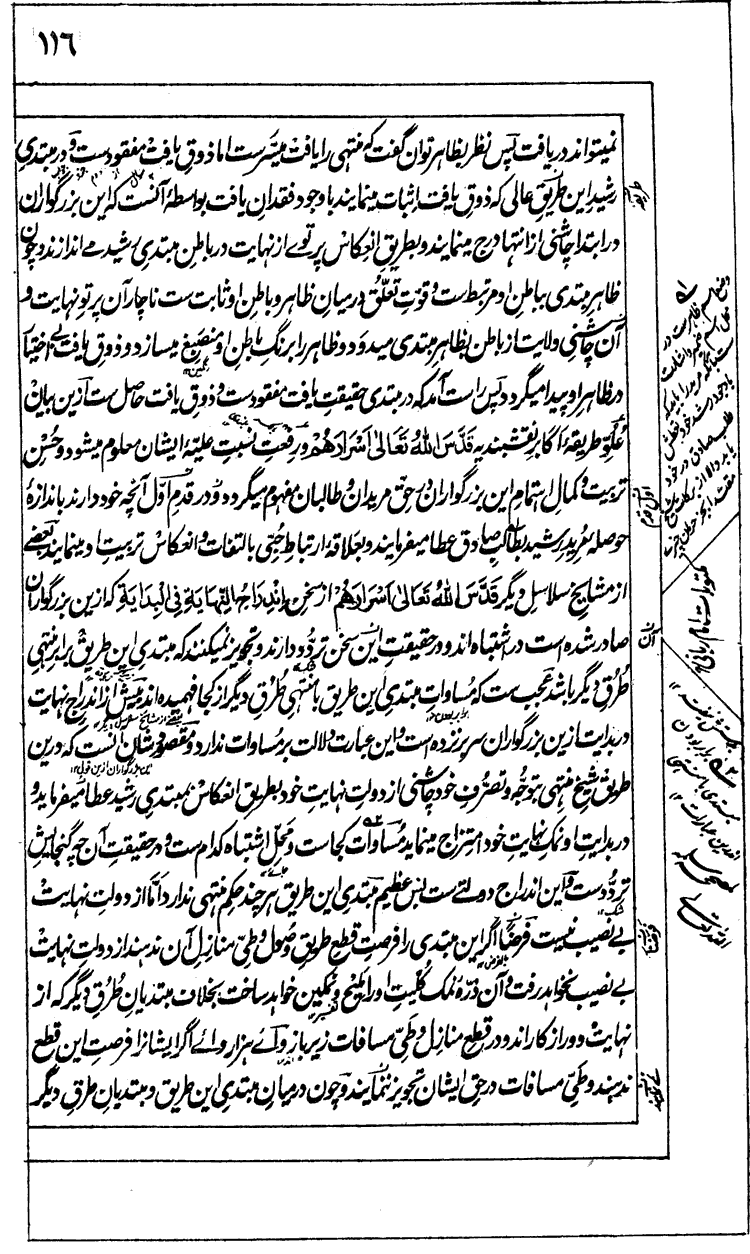 ١١٦
نمیتواند دریافت پس نظر بظاهر توان گفت که منتهی را یافت میسرست اما ذوق یافت مفقودست و در مبتدی
رشید این طریق عالی که ذوق یافت اثبات مینمایند باوجود فقدان یافت بواسطۀ آنست که این بزرگواران
در ابتدا چاشنی از انتها درج مینمایند و بطریق انعکاس پرتوے از نهایت در باطن مبتدی رشید مے اندازند و چون
ظاهر مبتدی بباطن او مرتبط ست و قوت تعلق درمیان ظاهر و باطن او ثابت ست ناچار آن پرتو نهایت و
آن چاشنی ولایت از باطن بظاهر مبتدی میدود و ظاهر را برنگ باطن او منصبغ میسازد و ذوق یافت بے اختیار
در ظاهر او پیدا میگردد پس راست آمد که در مبتدی حقیقت یافت مفقودست و ذوق یافت حاصل ست ازین بیان
علو طریقۀ اکابر نقشبندیه قدس الله تعالی اسرارهم و رفعت نسبت علیۀ ایشان معلوم میشود و حسن
تربیت و کمال اهتمام این بزرگواران در حق مریدان و طالبان مفهوم میگردد و در قدم اول آنچه خود دارند باندازۀ
حوصله بمرید رشید و طالب صادق عطا میفرمایند و بعلاقه ارتباط حبی بالتفات و انعکاس تربیت او مینمایند بعضے
از مشایخ سلاسل دیگر قدس الله تعالی اسرارهم از سخن اندراج النهایة فی البدایة که ازین بزرگواران
صادر شده است در اشتباه اند و در حقیقت این سخن تردد دارند و تجویز نمیکنند که مبتدی این طریق برابر منتهی
طرق دیگر باشد عجب ست که مساوات مبتدی این طریق با منتهی طرق دیگر از کجا فهمیده اند بیش از اندراج نهایت
در بدایت ازین بزرگواران سر برنزده است و این عبارت دلالت بر مساوات ندارد و مقصود شان آنست که درین
طریق شیخ منتهی بتوجه و تصرف خود چاشنی از دولت نهایت خود بطریق انعکاس بمبتدی رشید عطا میفرماید و
در بدایت او نمک نهایت خود امتزاج مینماید مساوات کجاست و محل اشتباه کدام ست و در حقیقت آن چه گنجایش
تردد ست و این اندراج دولتے ست بس عظیم مبتدی این طریق هر چند حکم منتهی ندارد اما از دولت نهایت
بے نصیب نیست فرضا اگر این مبتدی را فرصت قطع طریق وصول و طی منازل آن ندهند از دولت نهایت
بے نصیب نخواهد رفت و آن ذرۀ نمک کلیت او را ملیح و نمکین خواهد ساخت بخلاف مبتدیان طرق دیگر که از
نهایت دور از کار اند و در قطع منازل و طی مسافات زیر بار وائے هزار وائے اگر ایشانرا فرصت این قطع
ندهند و طی مسافات در حق ایشان تجویز ننمایند و چون درمیان مبتدی این طریق و مبتدیان طرق دیگر
مکتوبات امام ربانی